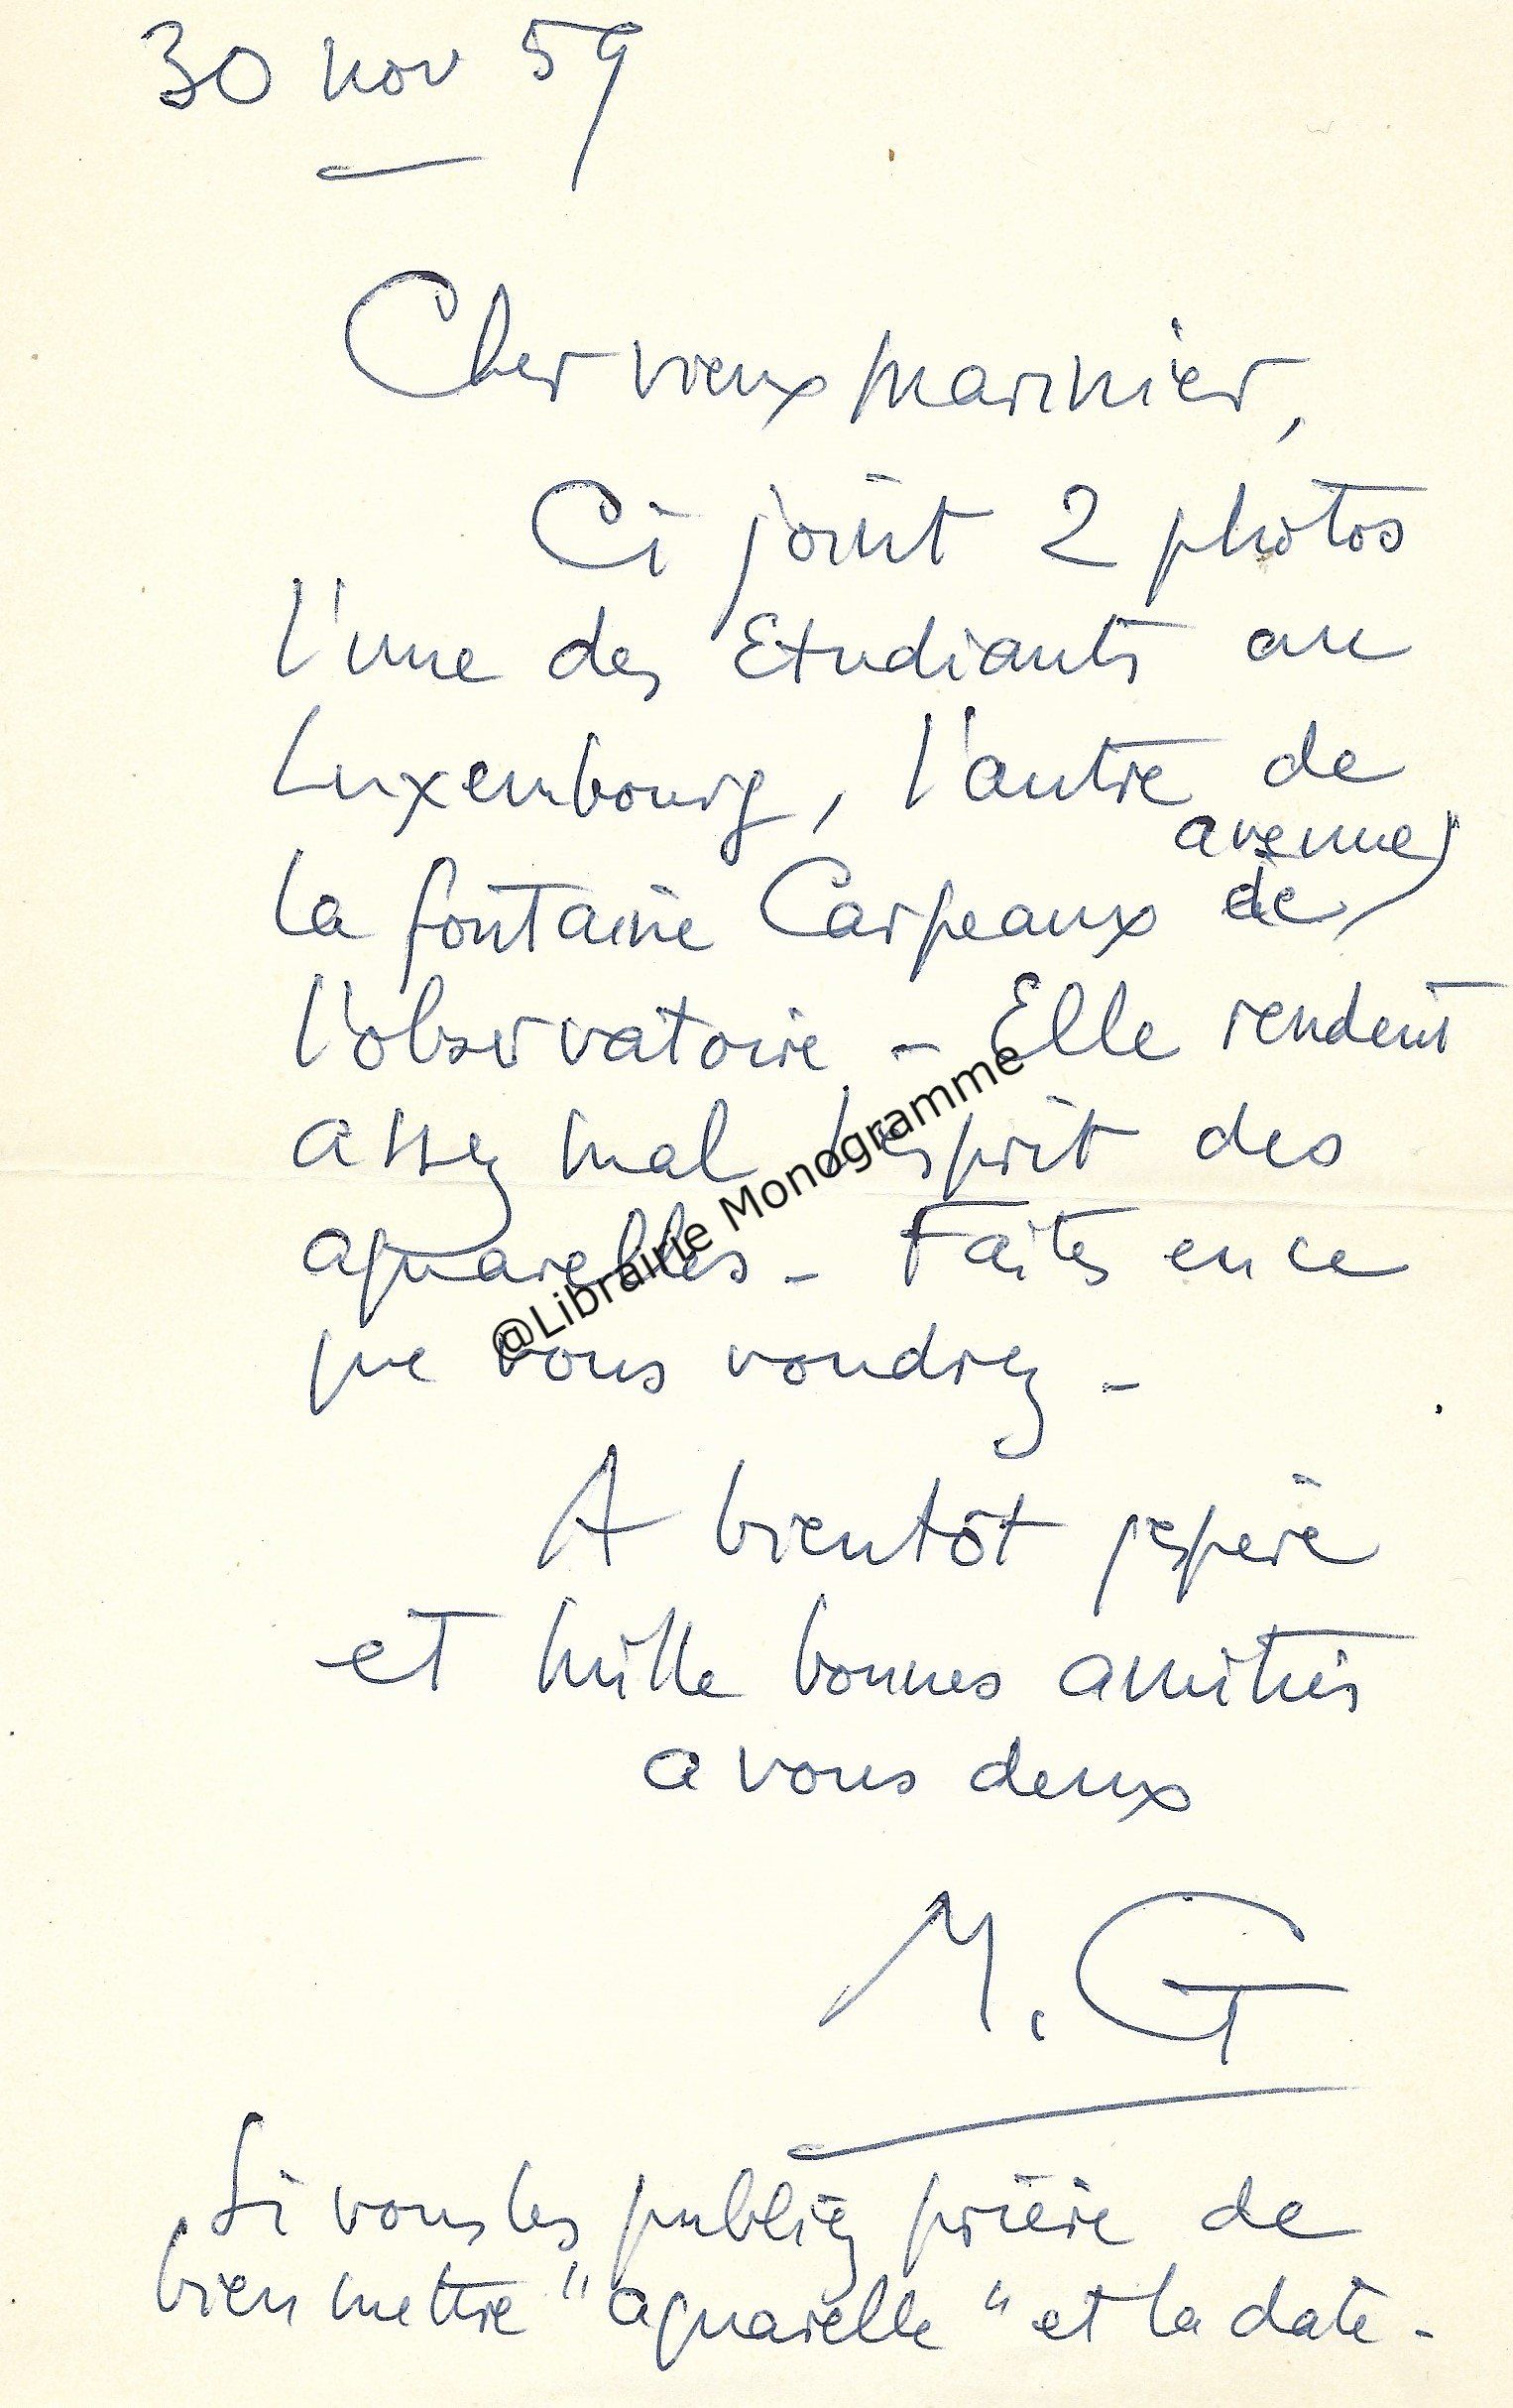 30 nov 59
Cher vieux marinier,
Ci joint 2 photos
l'une des Etudiants au
Luxembourg, l'autre de
la fontaine Carpeaux avenue
de
l'observatoire. - Elle rendent
assez mal l'esprit des
aquarelles - Faites en ce
que vous voudrez -
A bientôt j'espère
et mille bonnes amitiés
a vous deux
M. G
Si vous les publiez prière de
bien mettre "aquarelle" et la date -
@Librairie Monogramme